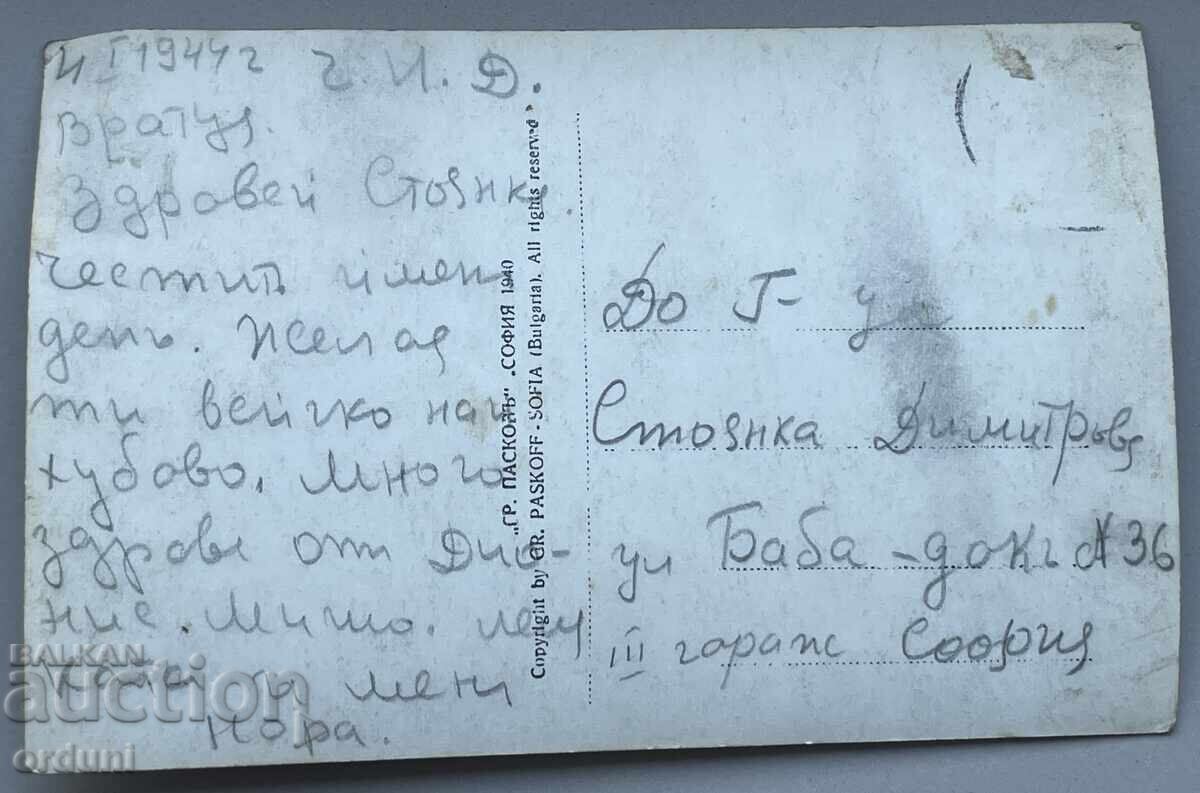 4 I 1944 г Ч. И. Д.
Вратца.
Здравей Стоянке.
Честитъ имен
день. Желая
ти всичко най
хубаво. Много
здраве от Дио-
ние. Мишо.
и мени
Нора.
"ГР. ПАСКОВЪ" "СОФИЯ 1940
Copyright by GR. PASKOFF - SOFIA (Bulgaria). All rights reserved
До Г-ца
Стоянка Димитрова
ул Баба-докъ № 36
III гараж София
BALKAN
auction
orduni